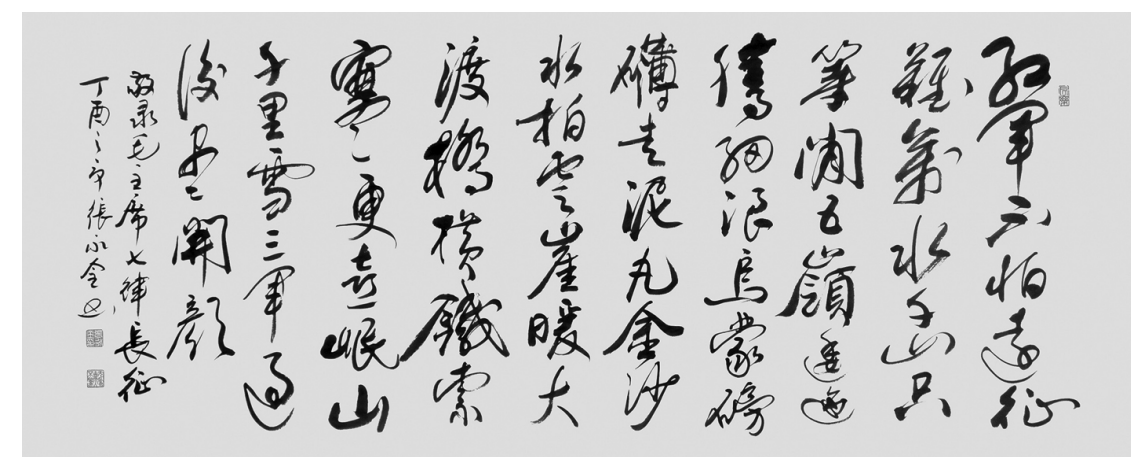 紅軍不怕遠征
難萬水千山只
等閒五嶺逶迤
騰細浪烏蒙磅
礴走泥丸金沙
水拍雲崖暖大
渡橋橫鐵索
寒寒更喜岷山
千里雪三軍過
後盡開顏
敬录毛主席七律長征
丁酉之年張永金書